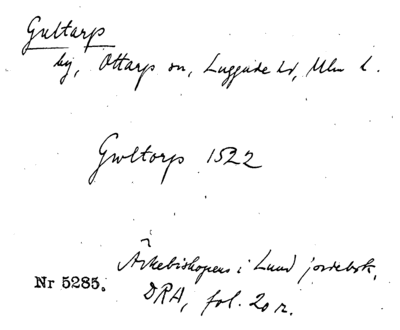 Gultarp
by, Ottarp sn, Luggude hd, Mlm l.
Gwltorp 1522
Ärkebiskopens i Lund jordebok,
Nr 5285.
DRA, fol. 20 r.